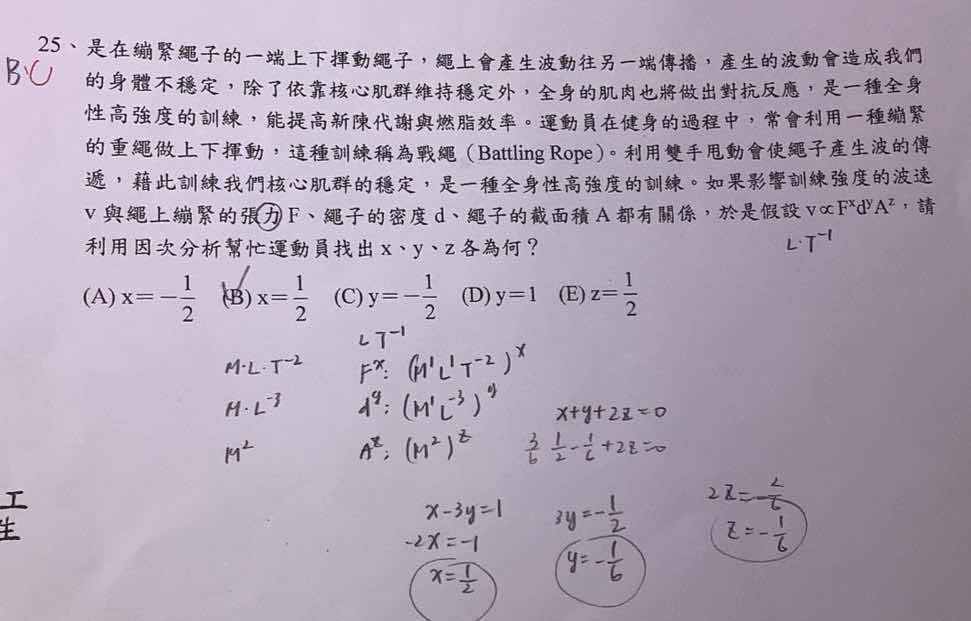 25、是在繃緊繩子的一端上下揮動繩子，繩上會產生波動往另一端傳播，產生的波動會造成我們
B、C
的身體不穩定，除了依靠核心肌群維持穩定外，全身的肌肉也將做出對抗反應，是一種全身
性高強度的訓練，能提高新陳代謝與燃脂效率。運動員在健身的過程中，常會利用一種繃緊
的重繩做上下揮動，這種訓練稱為戰繩（Battling Rope）。利用雙手甩動會使繩子產生波的傳
遞，藉此訓練我們核心肌群的穩定，是一種全身性高強度的訓練。如果影響訓練強度的波速
v 與繩上繃緊的張力 F、繩子的密度 d、繩子的截面積 A 都有關係，於是假設 v∝FˣdʸAᶻ，請
利用因次分析幫忙運動員找出 x、y、z 各為何？
L·T⁻¹
(A) x=−1/2 (B) x=1/2 (C) y=−1/2 (D) y=1 (E) z=1/2
L T⁻¹
M·L·T⁻² Fˣ: (M¹L¹T⁻²)ˣ
M·L⁻³ dʸ: (M¹L⁻³)ʸ x+y+2z=0
M² Aᶻ: (M²)ᶻ 3/6 1/2−1/6+2z=0
x−3y=1 3y=−1/2 2z=−2/6
−2x=−1 y=−1/6 z=−1/6
x=1/2
工
生